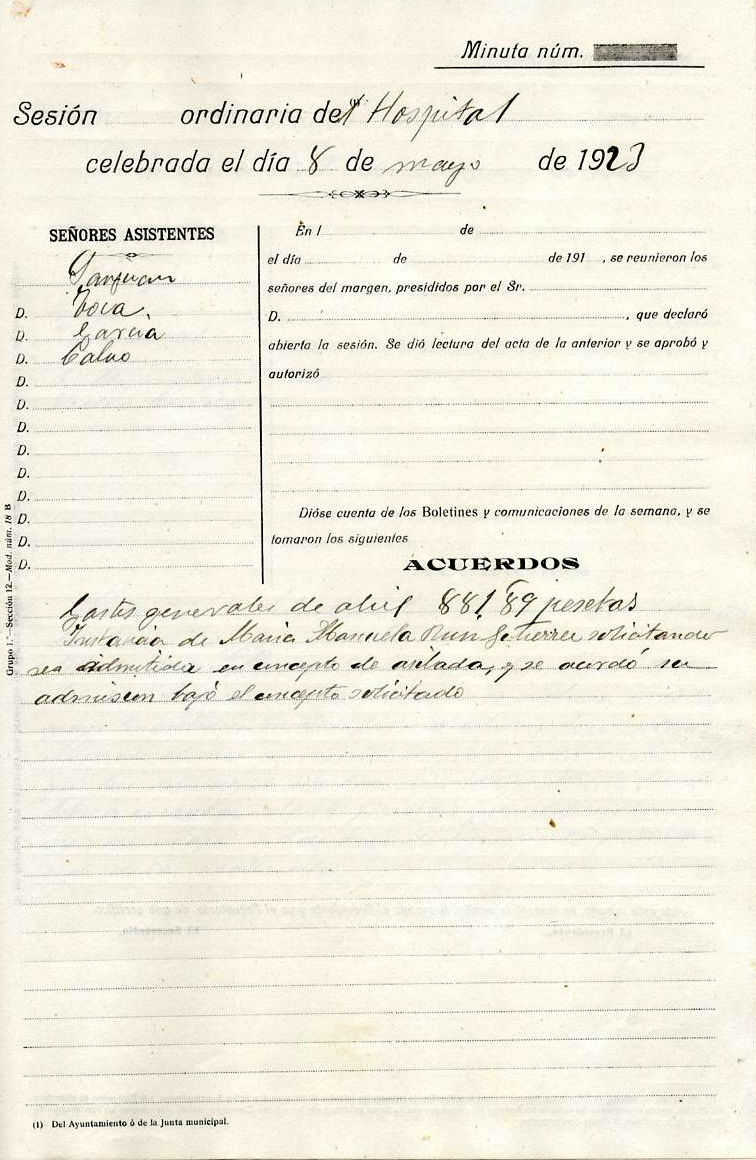 Minuta núm.
Sesión ordinaria del (1) Hospital
celebrada el día 8 de mayo de 1923
SEÑORES ASISTENTES
Sanjuan
D. Toca,
D. Garcia
D. Calvo
D.
D.
D.
D.
D.
D.
D.
D.
D.
En l de
el día de de 191 , se reunieron los
señores del margen, presididos por el Sr.
D. , que declaró
abierta la sesión. Se dió lectura del acta de la anterior y se aprobó y
autorizó
Dióse cuenta de los Boletines y comunicaciones de la semana, y se
tomaron los siguientes
ACUERDOS
Gastos generales de abril 881'89 pesetas
Instancia de Maria Manuela Ruiz Gutierrez solicitando
sea admitida en concepto de asilada, y se acordó su
admision bajo el concepto solicitado
Grupo 1.º—Sección 12.—Mod. núm. 18 B
(1) Del Ayuntamiento ó de la Junta municipal.